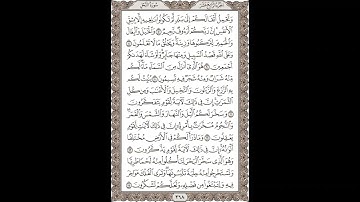 الجزء الرابع عشر
سورة النحل
وَتَحْمِلُ أَثْقَالَكُمْ إِلَىٰ بَلَدٍ لَّمْ تَكُونُوا۟ بَٰلِغِيهِ إِلَّا بِشِقِّ
ٱلْأَنفُسِ إِنَّ رَبَّكُمْ لَرَءُوفٌ رَّحِيمٌ ٧ وَٱلْخَيْلَ وَٱلْبِغَالَ
وَٱلْحَمِيرَ لِتَرْكَبُوهَا وَزِينَةً وَيَخْلُقُ مَا لَا تَعْلَمُونَ ٨
وَعَلَى ٱللَّهِ قَصْدُ ٱلسَّبِيلِ وَمِنْهَا جَآئِرٌ وَلَوْ شَآءَ لَهَدَىٰكُمْ
أَجْمَعِينَ ٩ هُوَ ٱلَّذِىٓ أَنزَلَ مِنَ ٱلسَّمَآءِ مَآءً لَّكُم
مِّنْهُ شَرَابٌ وَمِنْهُ شَجَرٌ فِيهِ تُسِيمُونَ ١٠ يُنۢبِتُ لَكُم
بِهِ ٱلزَّرْعَ وَٱلزَّيْتُونَ وَٱلنَّخِيلَ وَٱلْأَعْنَٰبَ وَمِن كُلِّ
ٱلثَّمَرَٰتِ إِنَّ فِى ذَٰلِكَ لَءَايَةً لِّقَوْمٍ يَتَفَكَّرُونَ
١١ وَسَخَّرَ لَكُمُ ٱلَّيْلَ وَٱلنَّهَارَ وَٱلشَّمْسَ وَٱلْقَمَرَ
وَٱلنُّجُومُ مُسَخَّرَٰتٌۢ بِأَمْرِهِۦٓ إِنَّ فِى ذَٰلِكَ لَءَايَٰتٍ لِّقَوْمٍ
يَعْقِلُونَ ١٢ وَمَا ذَرَأَ لَكُمْ فِى ٱلْأَرْضِ مُخْتَلِفًا
أَلْوَٰنُهُۥٓ إِنَّ فِى ذَٰلِكَ لَءَايَةً لِّقَوْمٍ يَذَّكَّرُونَ ١٣
وَهُوَ ٱلَّذِى سَخَّرَ ٱلْبَحْرَ لِتَأْكُلُوا۟ مِنْهُ لَحْمًا طَرِيًّا
وَتَسْتَخْرِجُوا۟ مِنْهُ حِلْيَةً تَلْبَسُونَهَا وَتَرَى ٱلْفُلْكَ مَوَاخِرَ
فِيهِ وَلِتَبْتَغُوا۟ مِن فَضْلِهِۦ وَلَعَلَّكُمْ تَشْكُرُونَ ١٤
٢٦٨